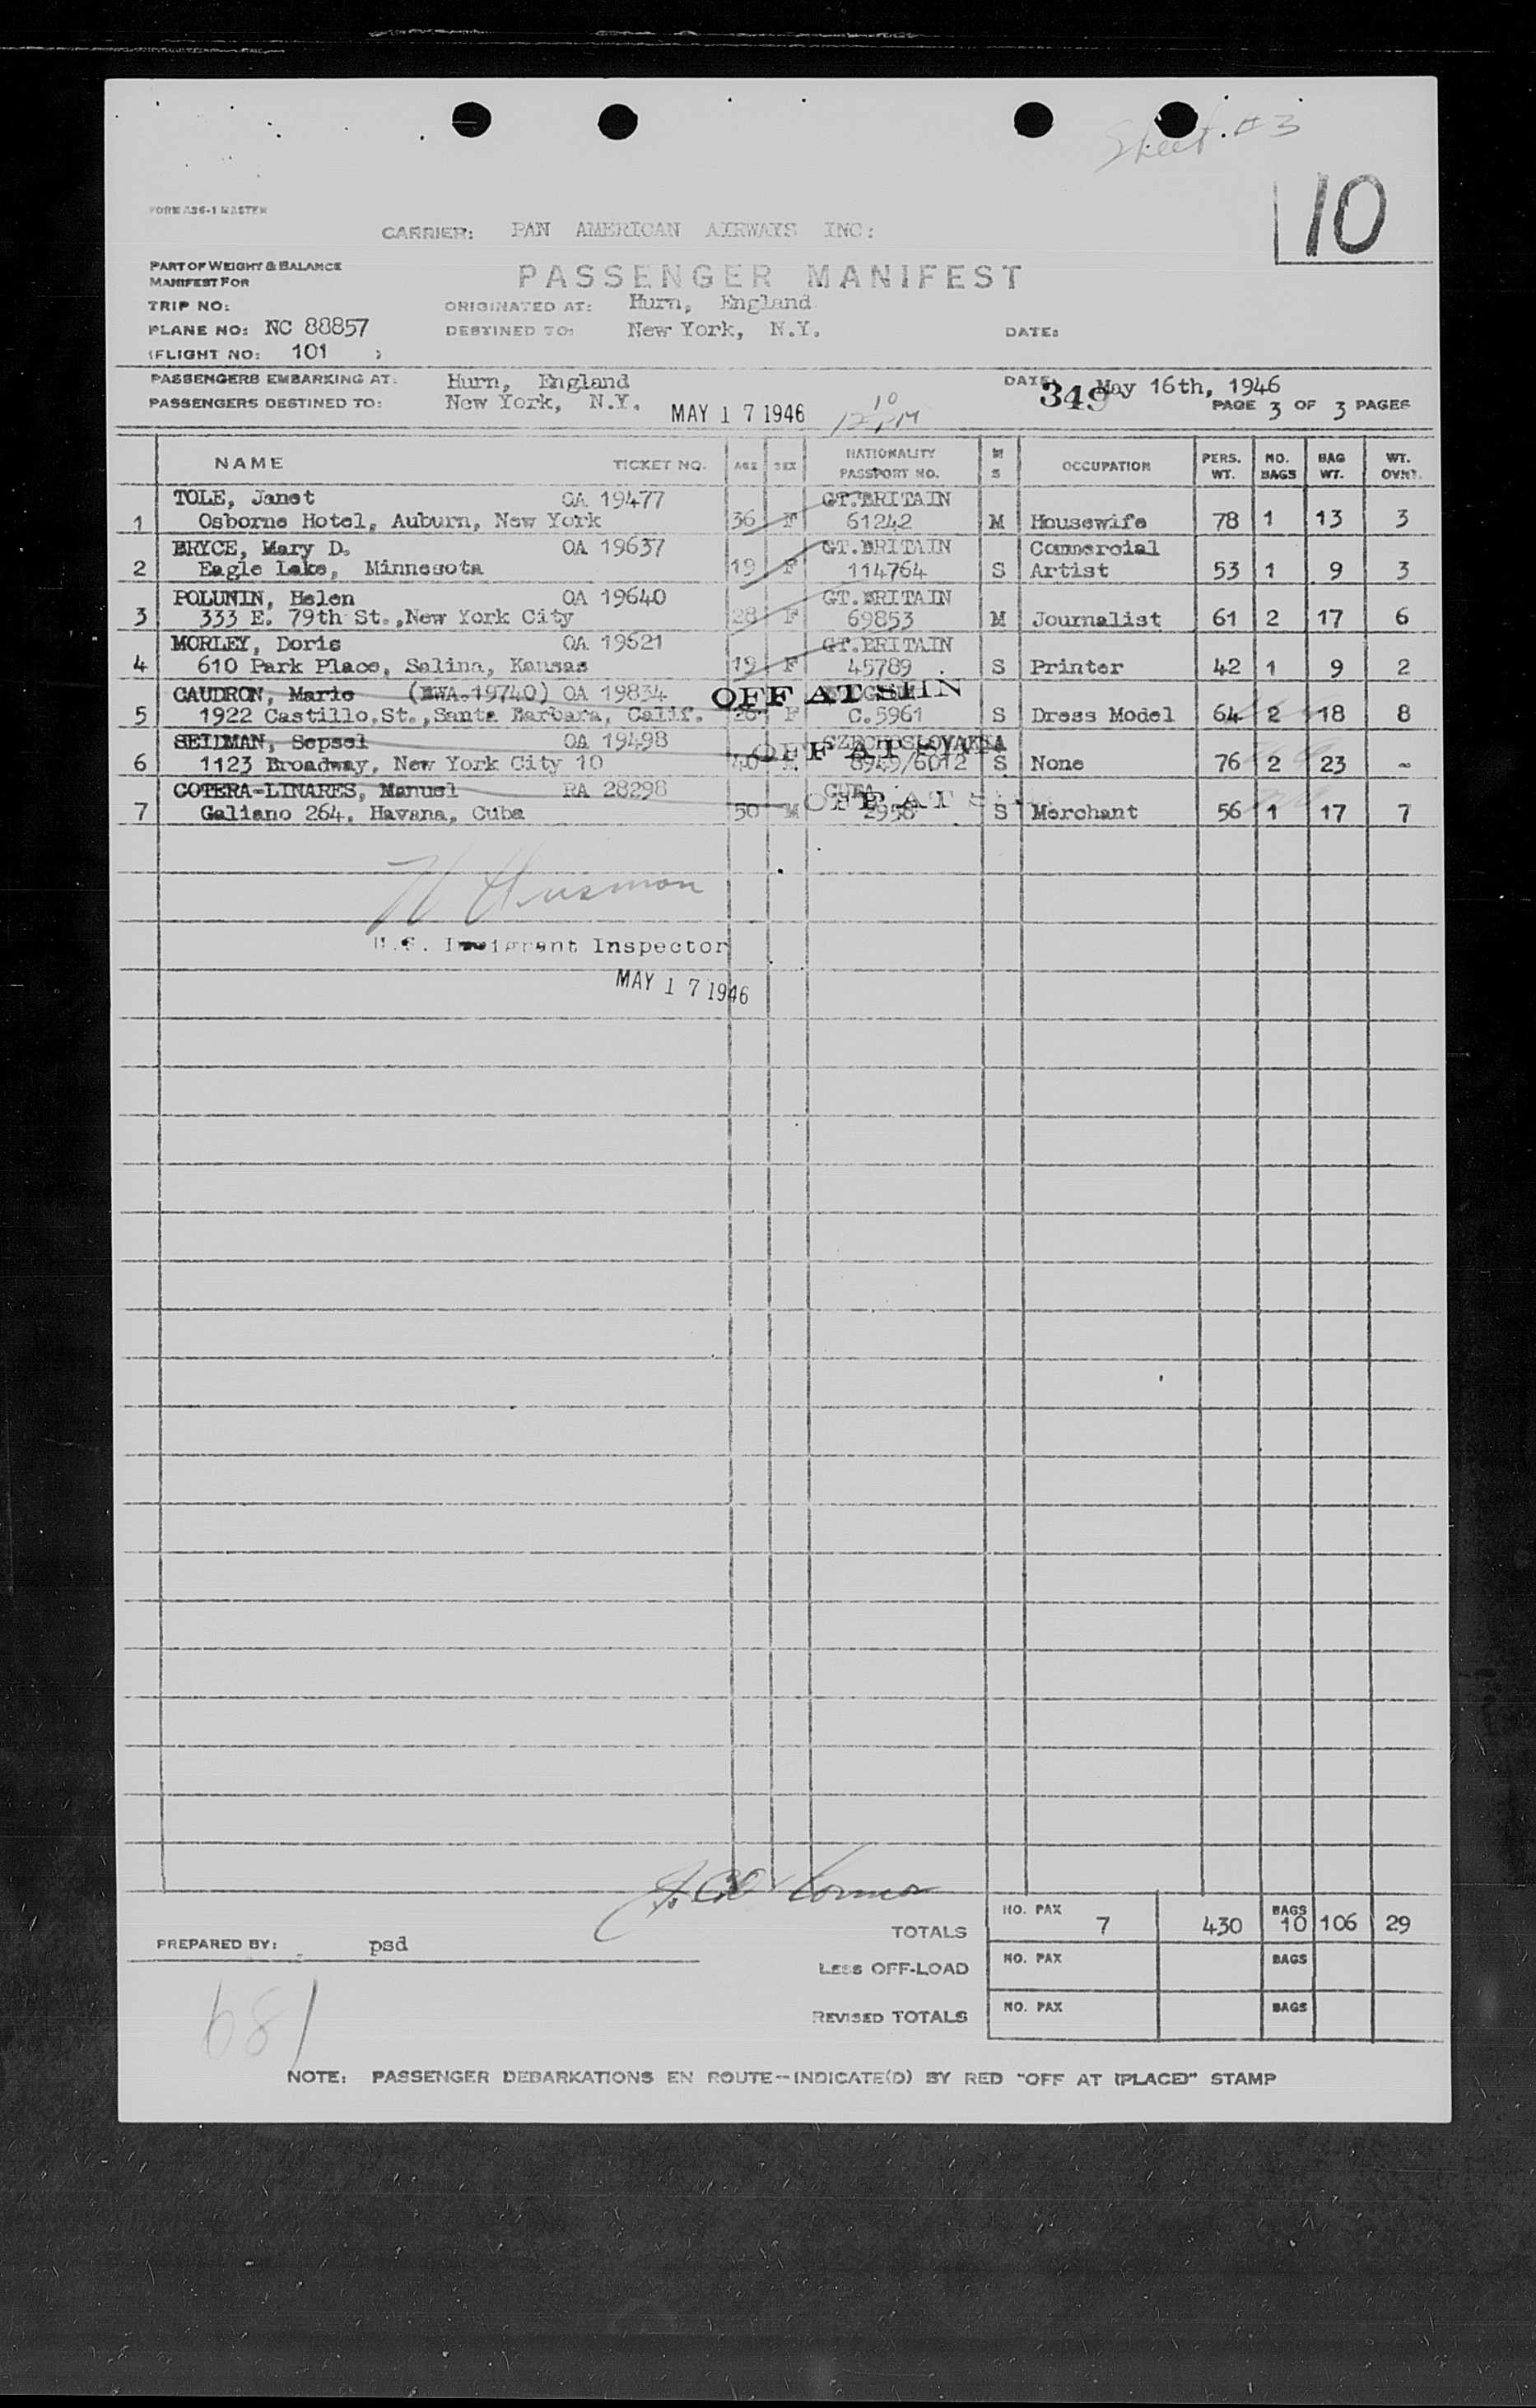 Sheet #3
10
FORM A36-1 MASTER
CARRIER: PAN AMERICAN AIRWAYS INC:
PART OF WEIGHT & BALANCE
MANIFEST FOR
PASSENGER MANIFEST
TRIP NO:
ORIGINATED AT: Hurn, England
PLANE NO: NC 88857
DESTINED TO: New York, N.Y.
DATE:
(FLIGHT NO: 101 )
PASSENGERS EMBARKING AT: Hurn, England
DATE: May 16th, 1946
349
PASSENGERS DESTINED TO: New York, N.Y.
MAY 17 1946
PAGE 3 OF 3 PAGES
NAME TICKET NO. AGE SEX NATIONALITY PASSPORT NO. M S OCCUPATION PERS. WT. NO. BAGS BAG WT. WT. OVNT.
TOLE, Janet OA 19477 GT.BRITAIN
1 Osborne Hotel, Auburn, New York 36 F 61242 M Housewife 78 1 13 3
BRYCE, Mary D. OA 19637 GT.BRITAIN Commercial
2 Eagle Lake, Minnesota 19 F 114764 S Artist 53 1 9 3
POLUNIN, Helen OA 19640 GT.BRITAIN
3 333 E. 79th St.,New York City 28 F 69853 M Journalist 61 2 17 6
MORLEY, Doris OA 19621 GT.BRITAIN
4 610 Park Place, Salina, Kansas 19 F 45789 S Printer 42 1 9 2
CAUDRON, Marie (EWA.19740) OA 19834 OFF AT SHN
5 1922 Castillo.St.,Santa Barbara, Calif. F C.5961 S Dress Model 64 2 18 8
SEIDMAN, Sepsel OA 19498 CZECHOSLOVAKIA
OFF AT
6 1123 Broadway, New York City 10 40 8949/6012 S None 76 2 23 -
COTERA-LINARES, Manuel RA 28298 CUBA
OFF AT
7 Galiano 264, Havana, Cuba 50 M 2958 S Merchant 56 1 17 7
H Husmon
U.S. Immigrant Inspector
MAY 17 1946
TOTALS NO. PAX 7 430 BAGS 10 106 29
PREPARED BY: psd
LESS OFF-LOAD NO. PAX BAGS
REVISED TOTALS NO. PAX BAGS
681
NOTE: PASSENGER DEBARKATIONS EN ROUTE--INDICATE(D) BY RED "OFF AT (PLACE)" STAMP